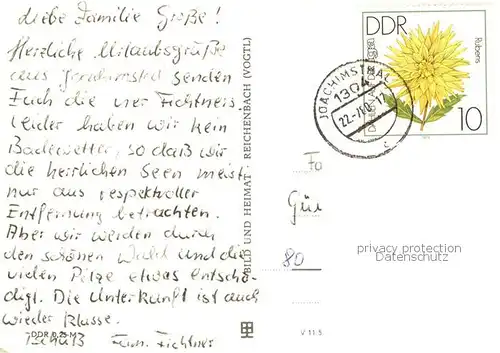 Liebe Familie Große!
Herzliche Urlaubsgrüße
aus Joachimsthal senden
Euch die vier Fichtners
Leider haben wir kein
Badewetter, so daß wir
die herrlichen Seen meist
nur aus respektvoller
Entfernung betrachten.
Aber wir werden durch
den schönen Wald und die
vielen Pilze etwas entschä-
digt. Die Unterkunft ist auch
wieder Klasse.
Tschüß Fam. Fichtner
DDR 0,25 M
BILD UND HEIMAT · REICHENBACH (VOGTL)
V 11 5
DDR
Rubens
10
JOACHIMSTHAL
1304
22.-7.80.-17
c
Fa
Gü
80
privacy protection
Datenschutz